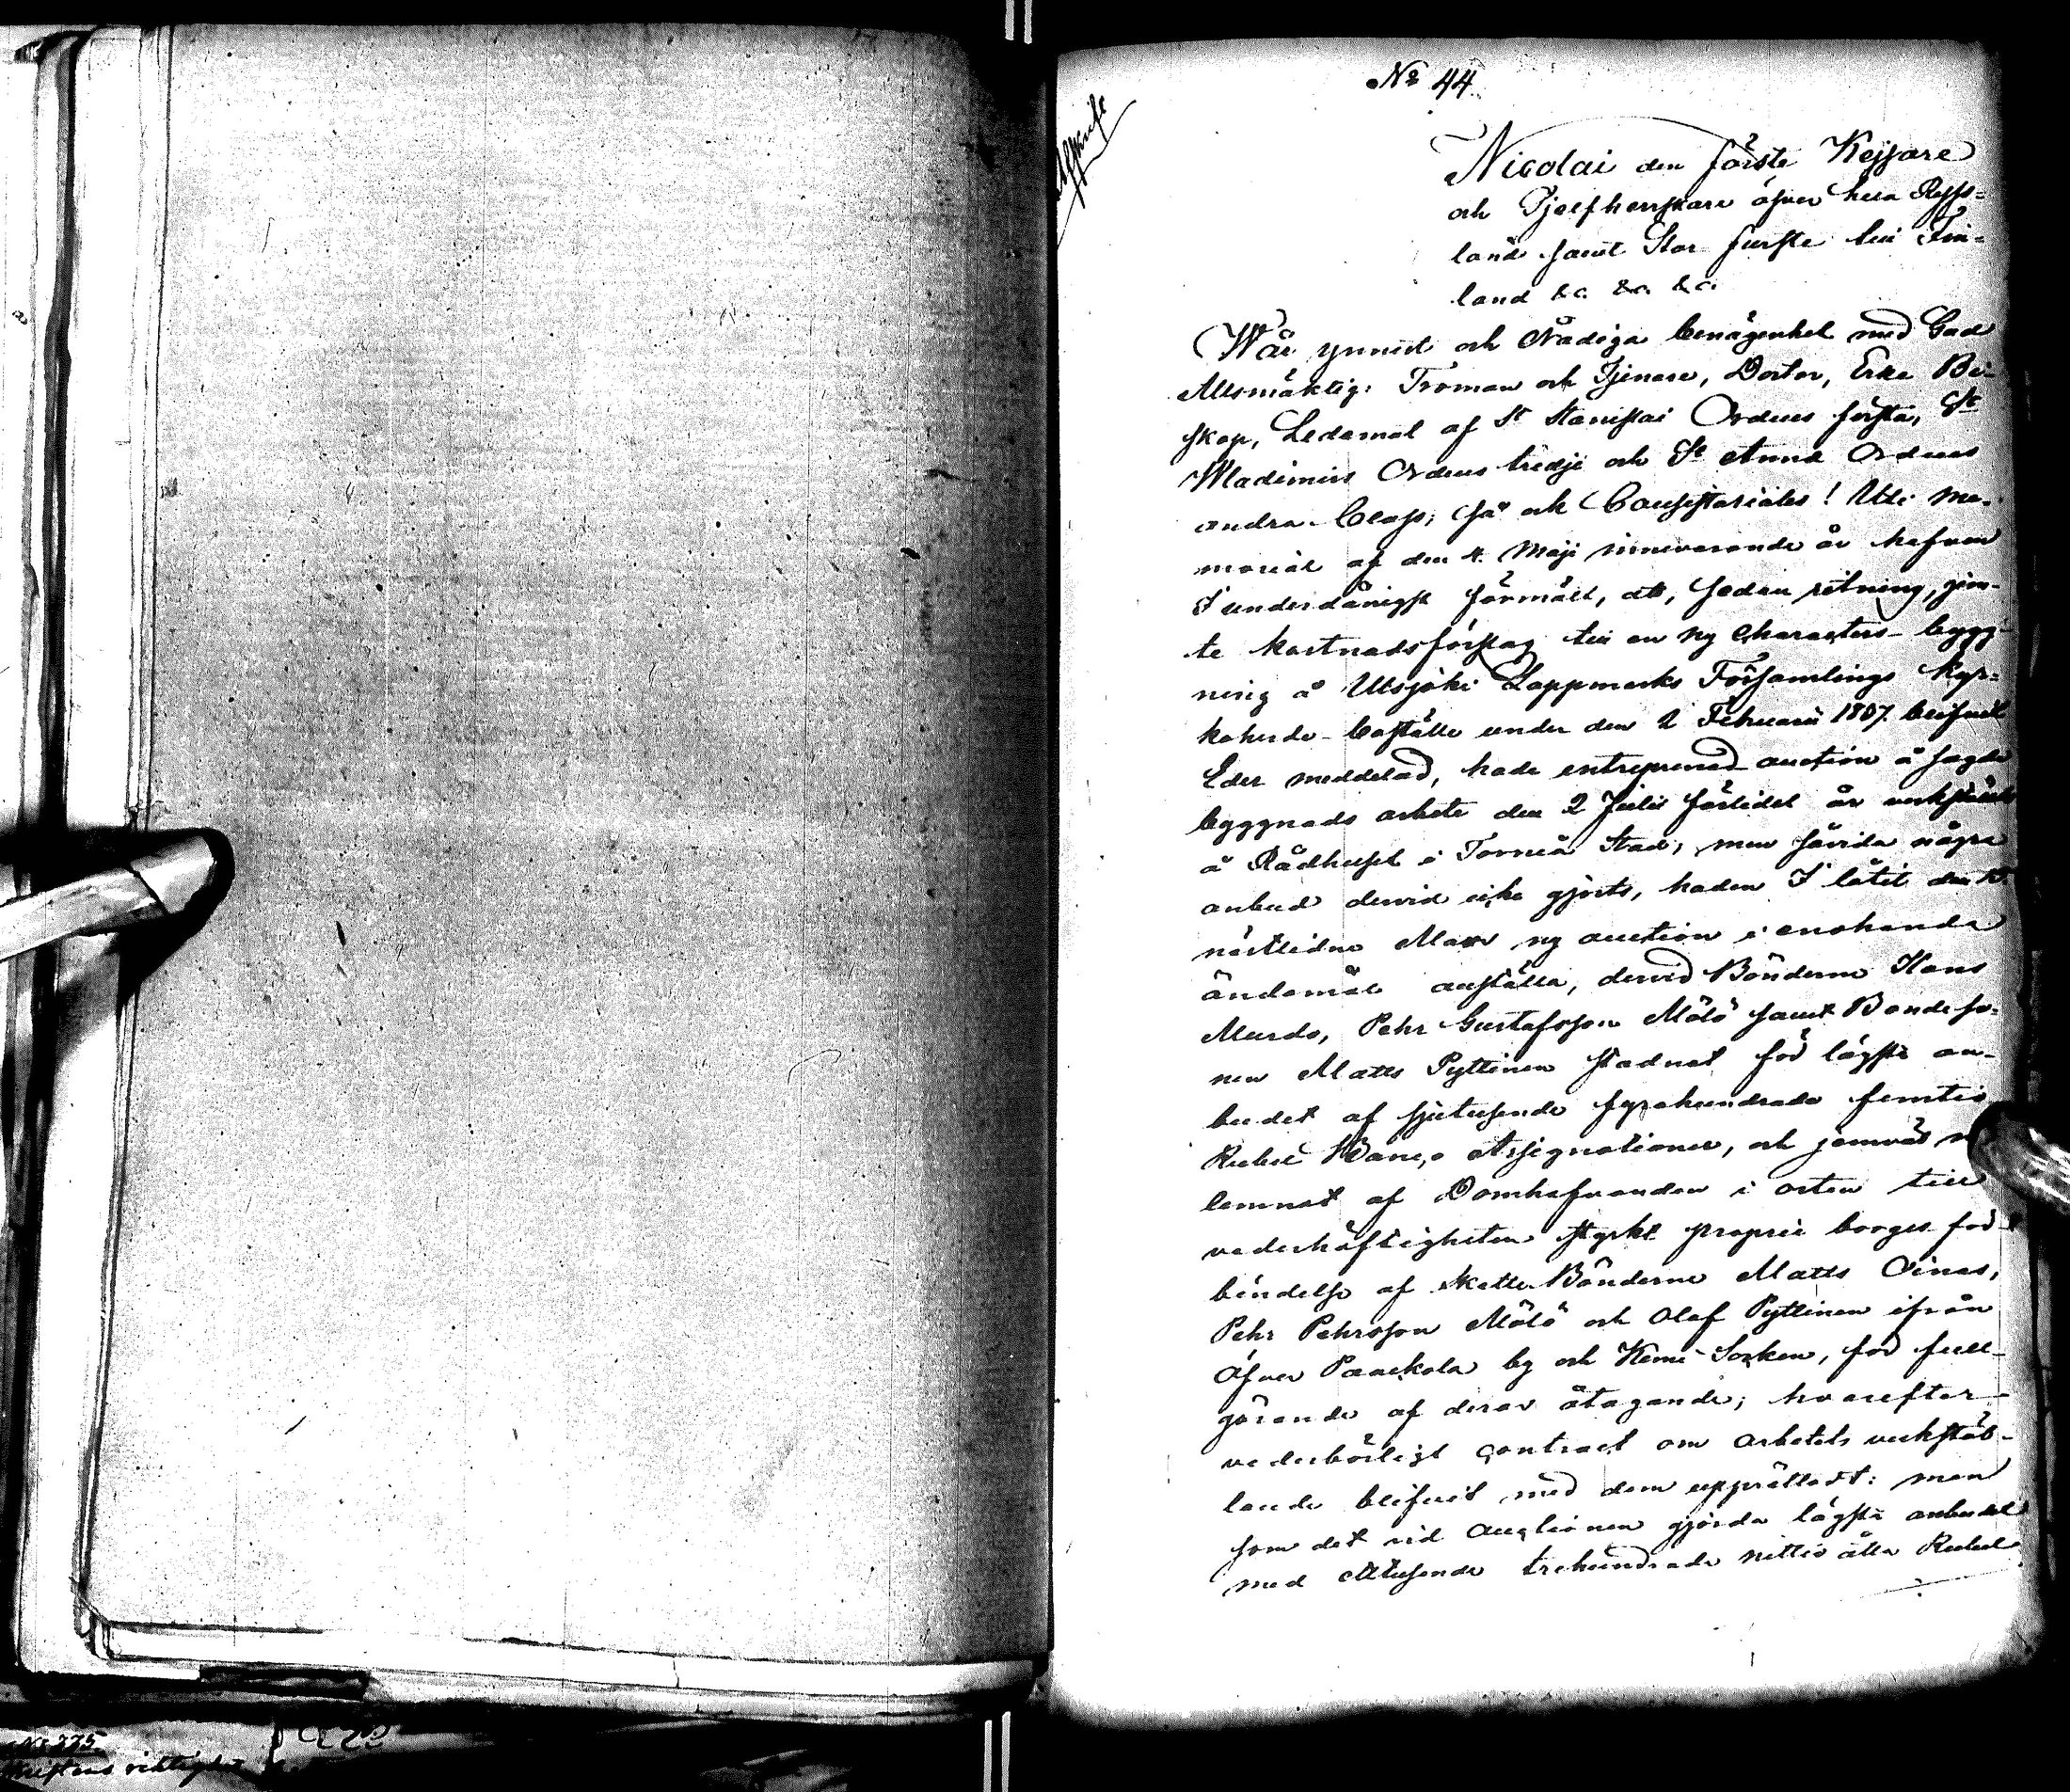 No 44.
Afskrift
Nicolai den förste Kejsare
och Sjelfherrskare öfver hela Ryss-
land samt Stor furste till Fin-
land &c. &c. &c.
Wår ynnest och Nådiga benägenhet med Gud
Allsmäktig: Troman och Tjenare, Doctor, Erke Bi-
skop, Ledamot af St Stanislai Ordens första, St
Wladimirs Ordens tredje och St Annæ Ordens
andra Class; så och Consistoriales! Uti me-
morial af den 4. Maji innevarande år hafven
I underdånigst förmält, att, sedan ritning, jem-
te kostnadsförslag till en ny Characters-bygg-
ning å Utsjoki Lappmarks Församlings Kyr-
koherde-boställe under den 2 Februarii 1837. blifvit
Eder meddelad, hade entreprenad auction å sagde
byggnads arbete den 2 Julii förlidet år verkställts
å Rådhuset i Torneå Stad; men såvida några
anbud dervid icke gjorts, haden I låtit den
nästlidne Mars ny auction i enahanda
ändamål anställa, dervid Bönderne Hans
Murdo, Pehr Gustafsson Mölö samt Bondeso-
nen Matts Pyttinen stadnat för lägsta an-
budet af sjutusende fyrahundrade femtio
Rubel Banco Assignationer, och jemväl
lemnat af Domhafvanden i orten till
vederhäftigheten styrkt proprie borges för-
bindelse af Skatte Bönderne Matts Oinas,
Pehr Pehrsson Mölö och Olof Pyttinen ifrån
Öfver Paackola by och Kemi Socken, för full-
görande af deras åtagande; hvarefter
vederbörligt contract om arbetets verkstäl-
lande blifvit med dem upprättadt: men
som det vid Auctionen gjorda lägsta anbudet
med Ettusende trehundrade nittio åtta Rubel
No 225.
riktighet